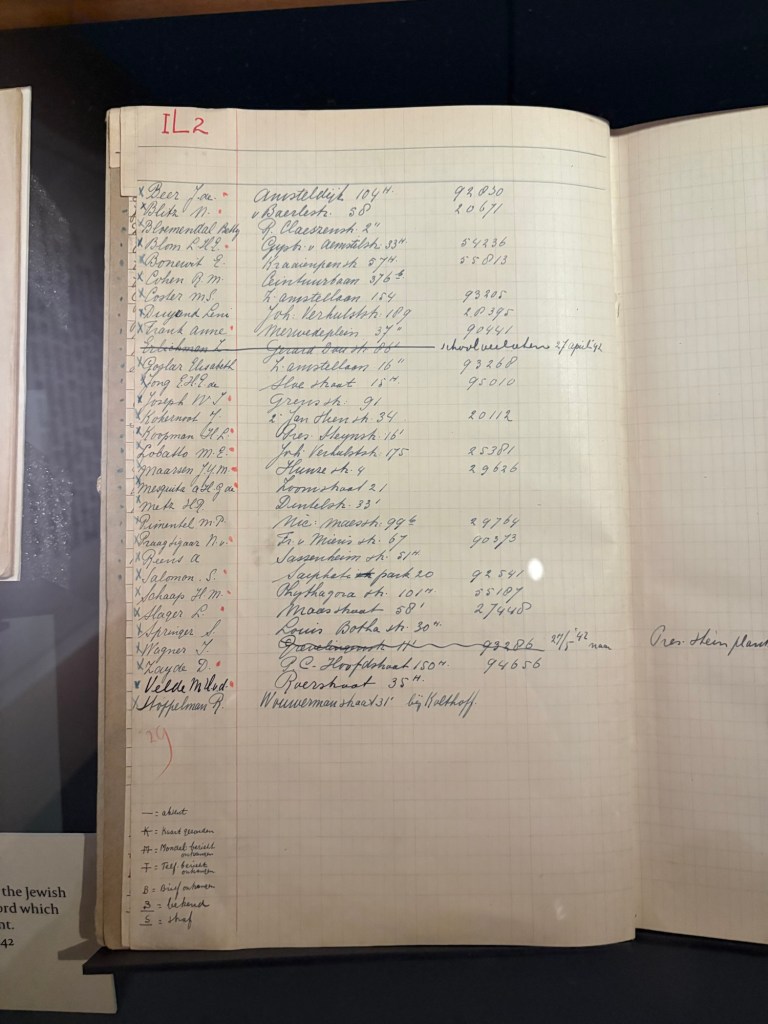 IL2
Beer J. de Amsteldijk 104ᴴ 92830
Blitz N. v Baerlestr. 58 20671
Bloemendal Betty R. Claeszenstr. 2ᴴ
Blom L.H.E. Gijsb. v Aemstelstr. 33ᴴ 54236
Bonewit E. Kraaienpanstr. 57ᴴ 55813
Cohen R.M. Ceintuurbaan 376
Coster M.S. Z. amstellaan 154 93205
Duyend Leni Joh. Verhulststr. 189 28395
Frank Anne Merwedeplein 37ᴴ 90441
Gerard Doustr. 86 school verlaten 27 april '42
Goslar Elisabeth Z. amstellaan 16ᴴ 93268
Jong E.H.E. de straat 15ᴴ 95010
Joseph W.J. Grensstr. 91
Kokernoot J. 2ᵉ Jan Steenstr. 34 20112
Koopman H.L. Pres. Steynstr. 16ᴵ
Lobatto M.E. Joh. Verhulststr. 175 25381
Maarsen J.Y.M. Hunzestr. 4 29626
Mesquita de Zoomstraat 21
Metz Dintelstr. 33ᴵ
Pimentel M.P. Nic. Maesstr. 99 29764
Praagsgaar N. v. Fr. v Mierisstr. 67 90373
Reens A. Sassenheimstr. 51ᴴ
Salomon. S. Sarphati park 20 92541
Schaap H.M. Phythagorastr. 101ᴴ 55187
Slager L. Maasstraat 58ᴵ 27448
Springer S. Louis Bothastr. 30ᴴ
Wagner J. Grevelingenstr. 93286 27/5 '42 naar Pres. Stein plant
Zayde D. P.C. Hoofdstraat 150ᴴ 94656
Velde M. v.d. Roerstraat 35ᴴ
Stoppelman R. Wouwermanstraat 31ᴵ bij Kolthoff.
29
— = absent
K = kaart gezonden
M = Mondel. bericht ontvangen
T = Telf. bericht ontvangen
B = Brief ontvangen
B = bekend
S = straf
the Jewish
ord which
nt.
42